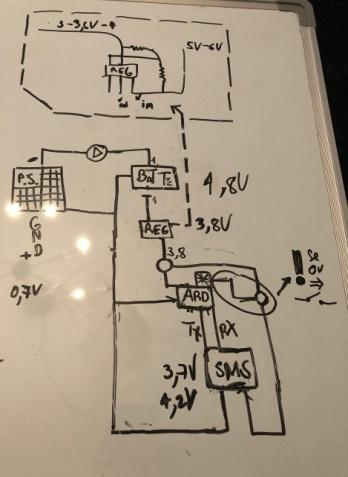 3-3,6V-4
5V-6V
REG
Vin
P.S.
BATTE
4,8V
REG
3,8V
GND
+
3,8
0,7V
ARD
Se
0V
TX
RX
3,7V
4,2V
SMS